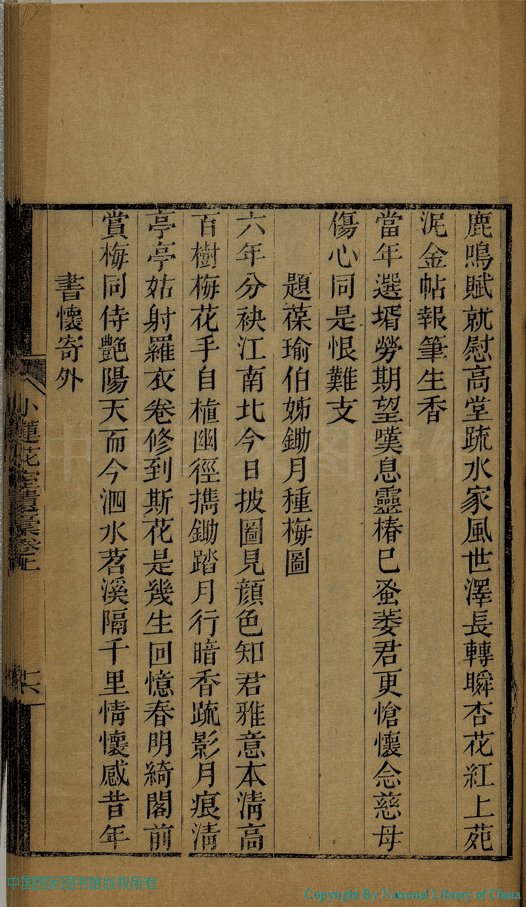 鹿鳴賦就慰高堂疏水家風世澤長轉瞬杏花紅上苑
泥金帖報筆生香
當年選壻勞期望嘆息靈椿已蚤萎君更愴懷念慈母
傷心同是恨難支
題葆瑜伯姊鋤月種梅圖
六年分袂江南北今日披圖見顔色知君雅意本淸高
百樹梅花手自植幽徑携鋤踏月行暗香疏影月痕淸
亭亭姑射羅衣卷修到斯花是幾生回憶春明綺閣前
賞梅同侍艷陽天而今泗水苕溪隔千里情懷感昔年
書懷寄外
小蓮花室遺稾卷上
中国国家图书馆版权所有
Copyright By National Library of China